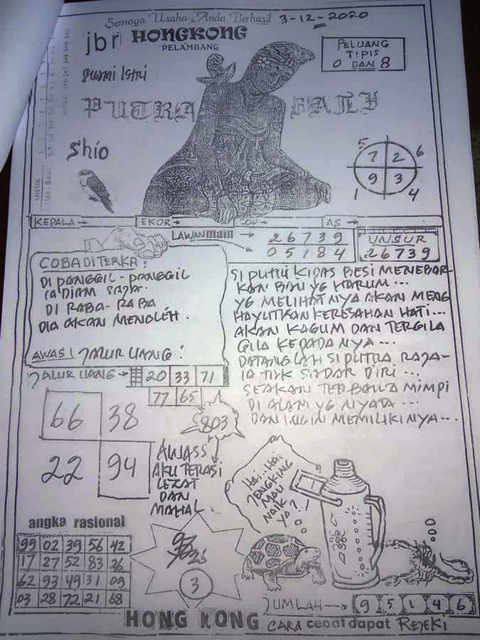 Semoga Usaha Anda Berhasil 3-12-2020
jbr HONGKONG
PELAMBANG
PELUANG
TIPIS
0 DAN 8
Bumi Istri
PUTRA BALI
Shio
5 7 2 6
1 9 3 4
KEPALA EKOR COP AS
LAWAN 26739
05184
UNSUR
26739
COBA DITERKA!
DI PANGGIL-PANGGIL
IA DIAM SAJA.
DI RABA-RABA
DIA AKAN MENOLEH.
AWAS! JALUR UANG!
SI PUTRI KIPAS BESI MENEBAR-
KAN BAU YG HARUM...
YG MELIHATNYA AKAN MENG
HAYUTKAN KERESAHAN HATI...
AKAN KAGUM DAN TERGILA
GILA KEPADANYA...
DATANGLAH SI PUTRA RAJA-
IA TAK SADAR DIRI...
SEAKAN TERBAWA MIMPI
DI ALAM YG NYATA...
DAN INGIN MEMILIKINYA...
JALUR UANG 20 33 71
77 65
803
66 38
22 94
AWASS
AKU TERASI
LEZAT
DAN
MAHAL.
HAI..HAI
JENGKING
MAU
NAIK
YA!
angka rasional
99 02 39 56 42
17 27 52 83 26
62 93 49 31 09
03 28 72 21 68
3
JUMLAH 9 5 1 4 6
HONG KONG CARA cepat dapat REJEKI